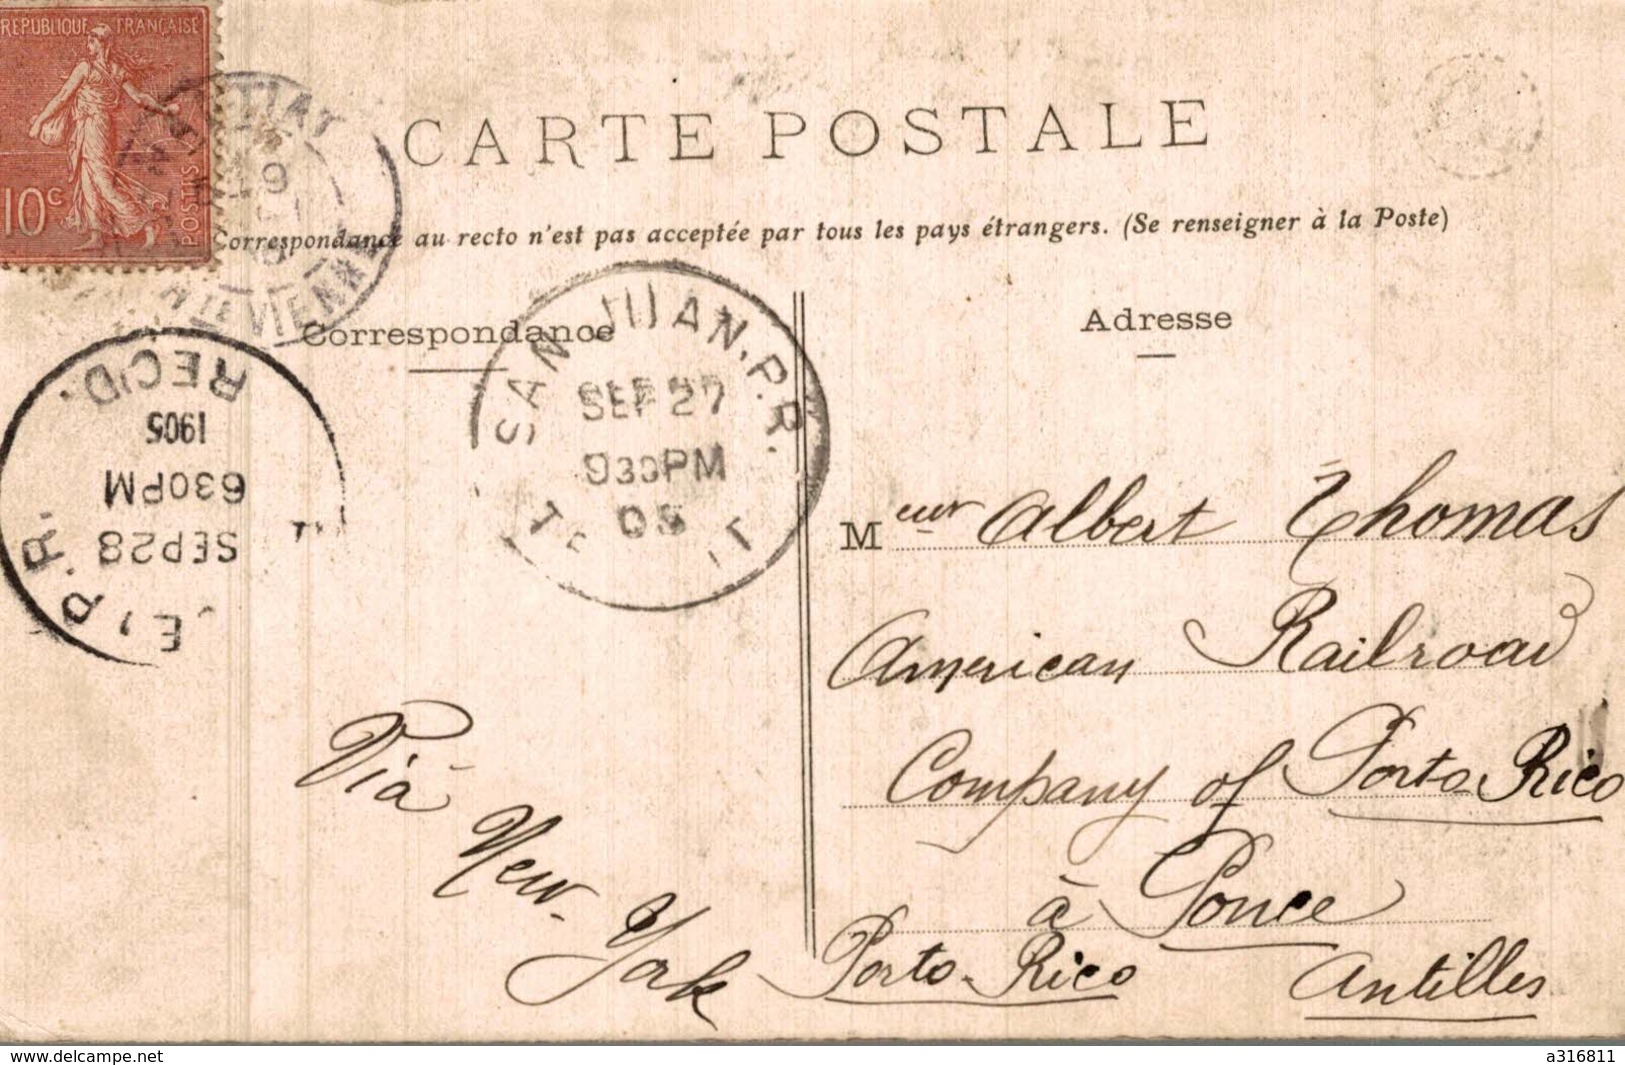 REPUBLIQUE FRANÇAISE
10c
POSTES
19
Hte VIENNE
CARTE POSTALE
Correspondance au recto n'est pas acceptée par tous les pays étrangers. (Se renseigner à la Poste)
Correspondance
Adresse
SAN JUAN, P.R.
SEP 27
930PM
05
REC'D.
1905
630PM
SEP 28
E, P.R.
Meur Albert Thomas
American Railroad
Company of Porto-Rico
à Ponce
Porto-Rico Antilles
Vià
New-
York
delcampe.net
a316811